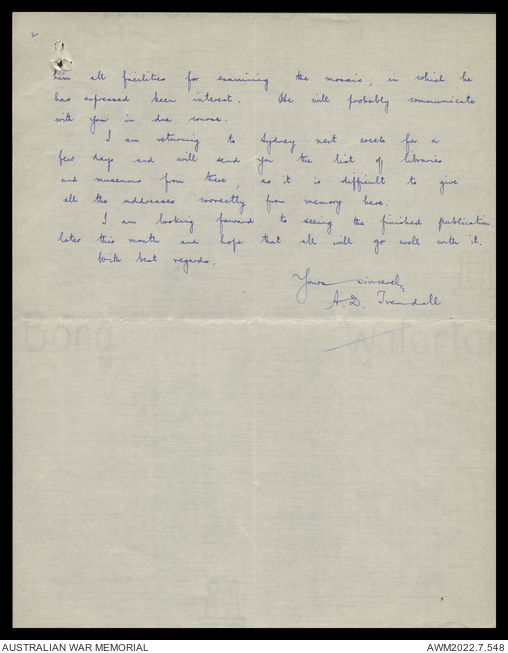 2
him all facilities for examining the mosaic, in which he
has expressed keen interest. He will probably communicate
with you in due course.
I am returning to Sydney next week for a
few days and will send you the list of libraries
and museums from there, as it is difficult to give
all the addresses correctly from memory here.
I am looking forward to seeing the finished publication
later this month and hope that all will go well with it.
With best regards.
Yours sincerely
A. D. Trendall
AUSTRALIAN WAR MEMORIAL
AWM2022.7.548